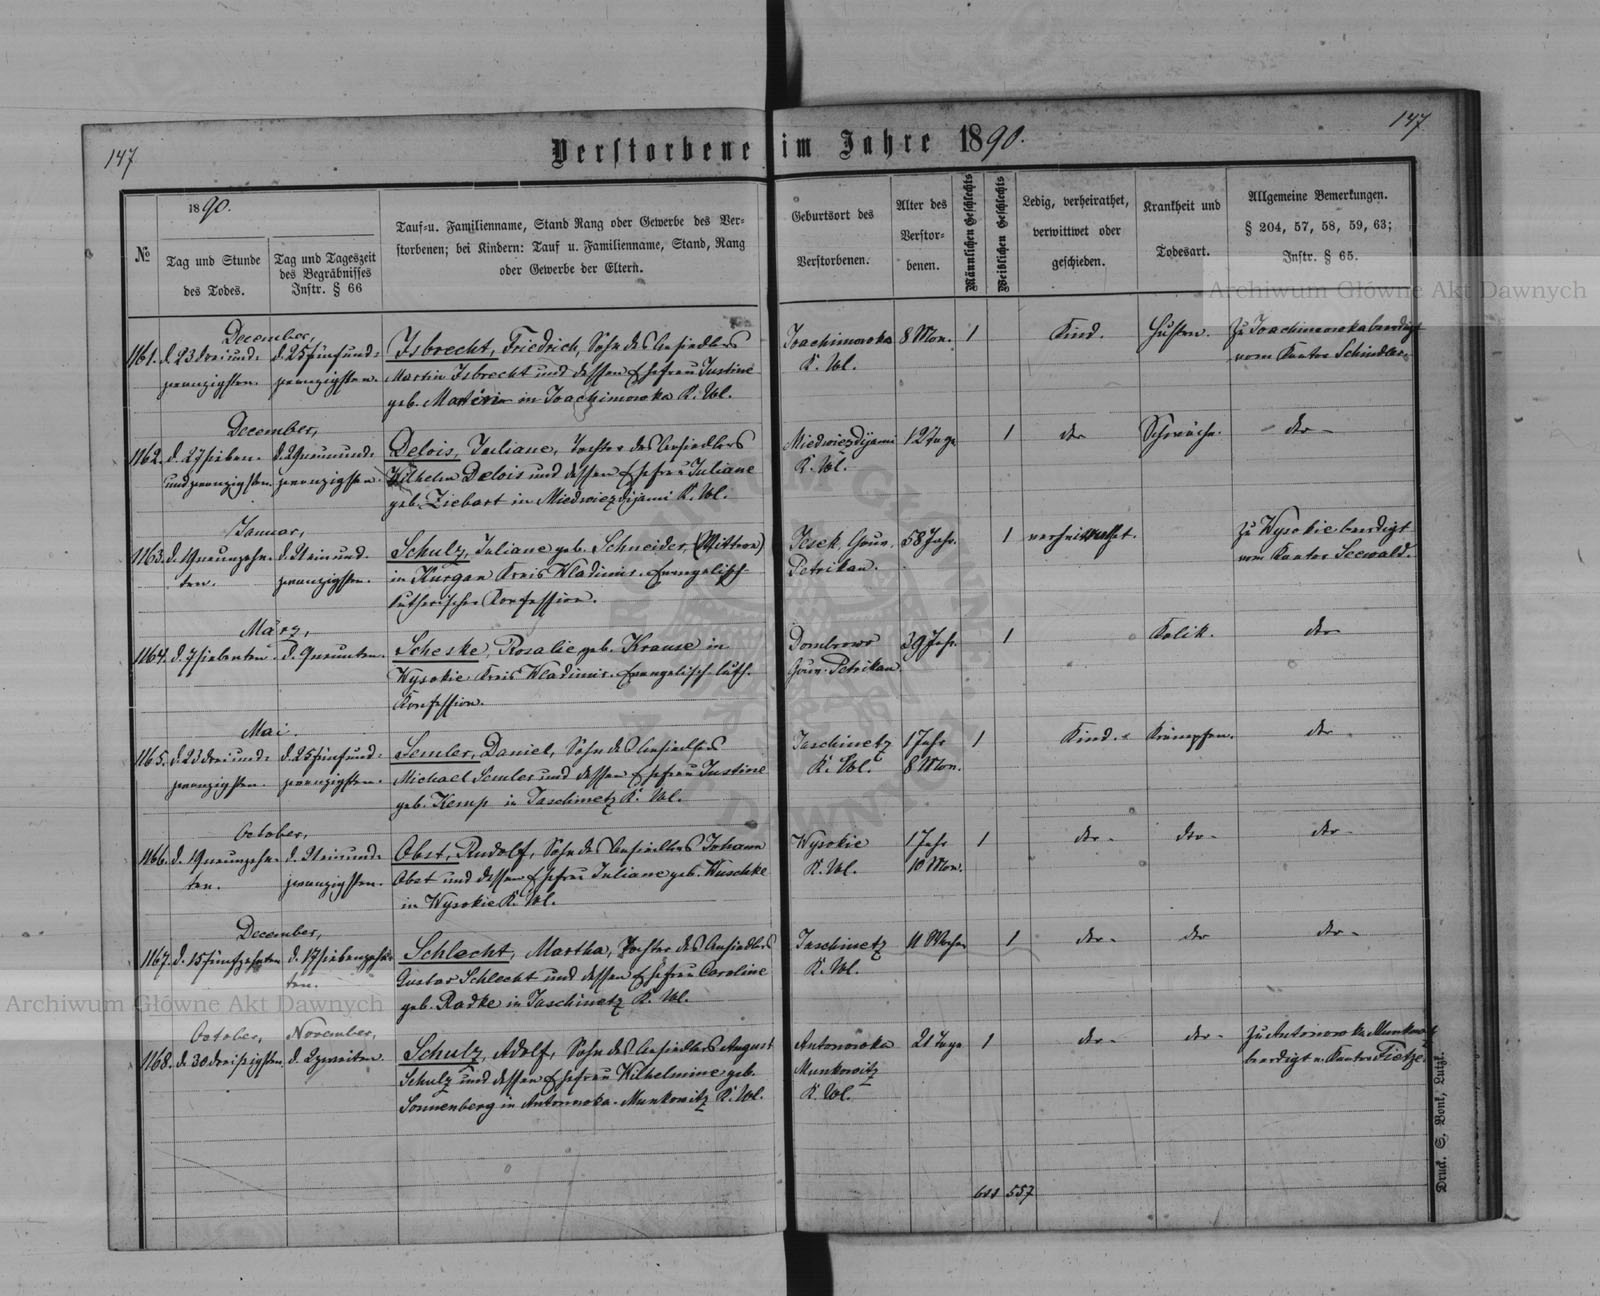 147.
147
Verstorbene im Jahre 1890.
№
1890.
Tag und Stunde
des Todes.
Tag und Tageszeit
des Begräbnisses
Instr. § 66
Tauf-u. Familienname, Stand Rang oder Gewerbe des Ver-
storbenen; bei Kindern: Tauf u. Familienname, Stand, Rang
oder Gewerbe der Eltern.
Geburtsort des
Verstorbenen.
Alter des
Verstor-
benen.
Männlichen Geschlechts
Weiblichen Geschlechts
Ledig, verheirathet,
verwittwet oder
geschieden.
Krankheit und
Todesart.
Allgemeine Bemerkungen.
§ 204, 57, 58, 59, 63;
Instr. § 65.
Archiwum Główne Akt Dawnych
December,
1161. d. 23 dreiund- d. 25 fünfund- Isbrecht, Friedrich, Sohn des Ansiedlers Joachimowka 8 Mon. 1 Kind. Husten. Zu Joachimowka beerdigt
zwanzigsten. zwanzigsten. Martin Isbrecht und dessen Ehefrau Justine K. Wl. vom Kantor Schindler.
geb. in Joachimowka K. Wl.
December,
1162. d. 27 sieben- d. 29 neunund- Delois, Juliane, Tochter des Ansiedlers Miedwiezdijami 12 Tage 1 dto Schwäche. dto
undzwanzigsten. zwanzigsten. Wilhelm Delois und dessen Ehefrau Juliane K. Wl.
geb. Ziebart in Miedwiezdijami K. Wl.
Januar,
1163. d. 19 neunzehn- d. 21 einund- Schulz, Juliane geb. Schneider, (Wittwe) Gouv. 58 Jahr. 1 Zu Wysokie beerdigt
ten. zwanzigsten. in Kurgan Kreis Wladimir. Evangelisch- Petrikau. vom Kantor Seewald.
lutherischer Konfession.
März,
1164. d. 7 siebenten. d. 9 neunten. Scheske, Rosalie geb. Krause in Dombrowo 39 Jahr. 1 Kolik. dto
Wysokie Kreis Wladimir. Evangelisch-luth. Gouv. Petrikau.
Konfession.
Mai.
1165. d. 23 dreiund- d. 25 fünfund- Semler, Daniel, Sohn des Ansiedlers Jaschinetz 1 Jahr 1 Kind. Krämpfen. dto
zwanzigsten. zwanzigsten. Michael Semler und dessen Ehefrau Justine K. Wl. 8 Mon.
geb. Kemp in Jaschinetz K. Wl.
October,
1166. d. 19 neunzehn- d. 21 einund- Obst, Rudolf, Sohn des Ansiedlers Johann Wysokie 1 Jahr 1 dto dto dto
ten. zwanzigsten. Obst und dessen Ehefrau Juliane geb. Wuschke K. Wl. 10 Mon.
in Wysokie K. Wl.
December,
1167. d. 15 fünfzehnten d. 17 siebenzehn- Schlecht, Martha, Tochter des Ansiedlers Jaschinetz 11 Wochen 1 dto dto dto
ten. Gustav Schlecht und dessen Ehefrau Caroline K. Wl.
geb. Radke in Jaschinetz K. Wl.
Archiwum Główne Akt Dawnych
October, November,
1168. d. 30 dreißigsten. d. 2 zweiten. Schulz, Adolf, Sohn des Ansiedlers August Antonowka 21 Tage 1 dto dto Zu Antonowka Munkowitz
Schulz und dessen Ehefrau Wilhelmine geb. Munkowitz beerdigt v. Kantor Tietze.
Sonnenberg in Antonowka-Munkowitz K. Wl. K. Wl.
611 557
Druck. S. Bonk, Lutzk.